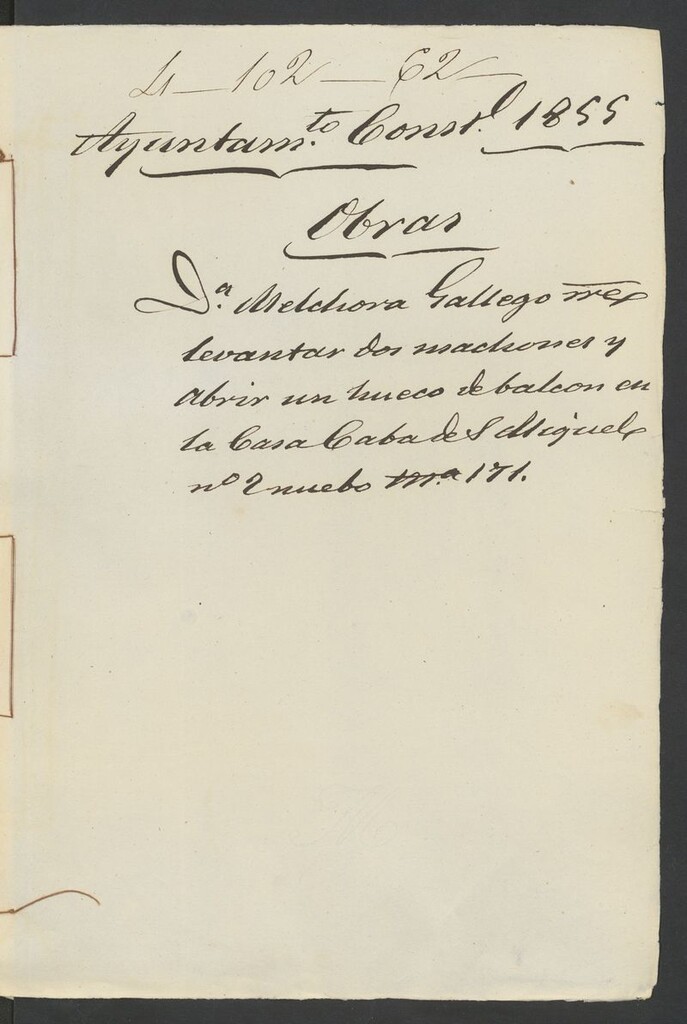 4-102-62
Ayuntam.to Const.l 1855
Obras
D.a Melchora Gallego sre
levantar dos machones y
abrir un hueco de balcon en
la Casa Caba de S Miguel
no 2 nuebo Ma 171.